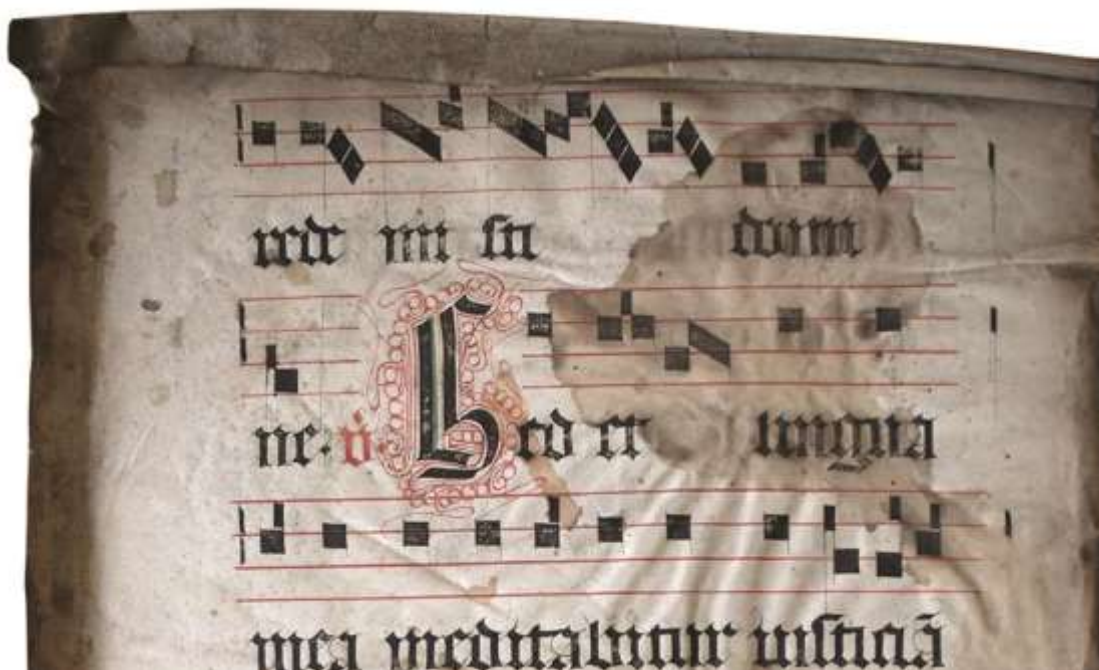 rede mi sti domi
ne. v̇. Sed et lingua
mea meditabitur iusticiā